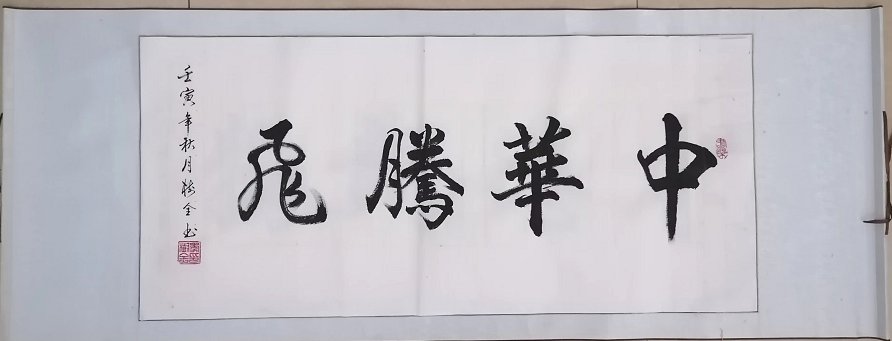 中華騰飛
壬寅年秋月 全书